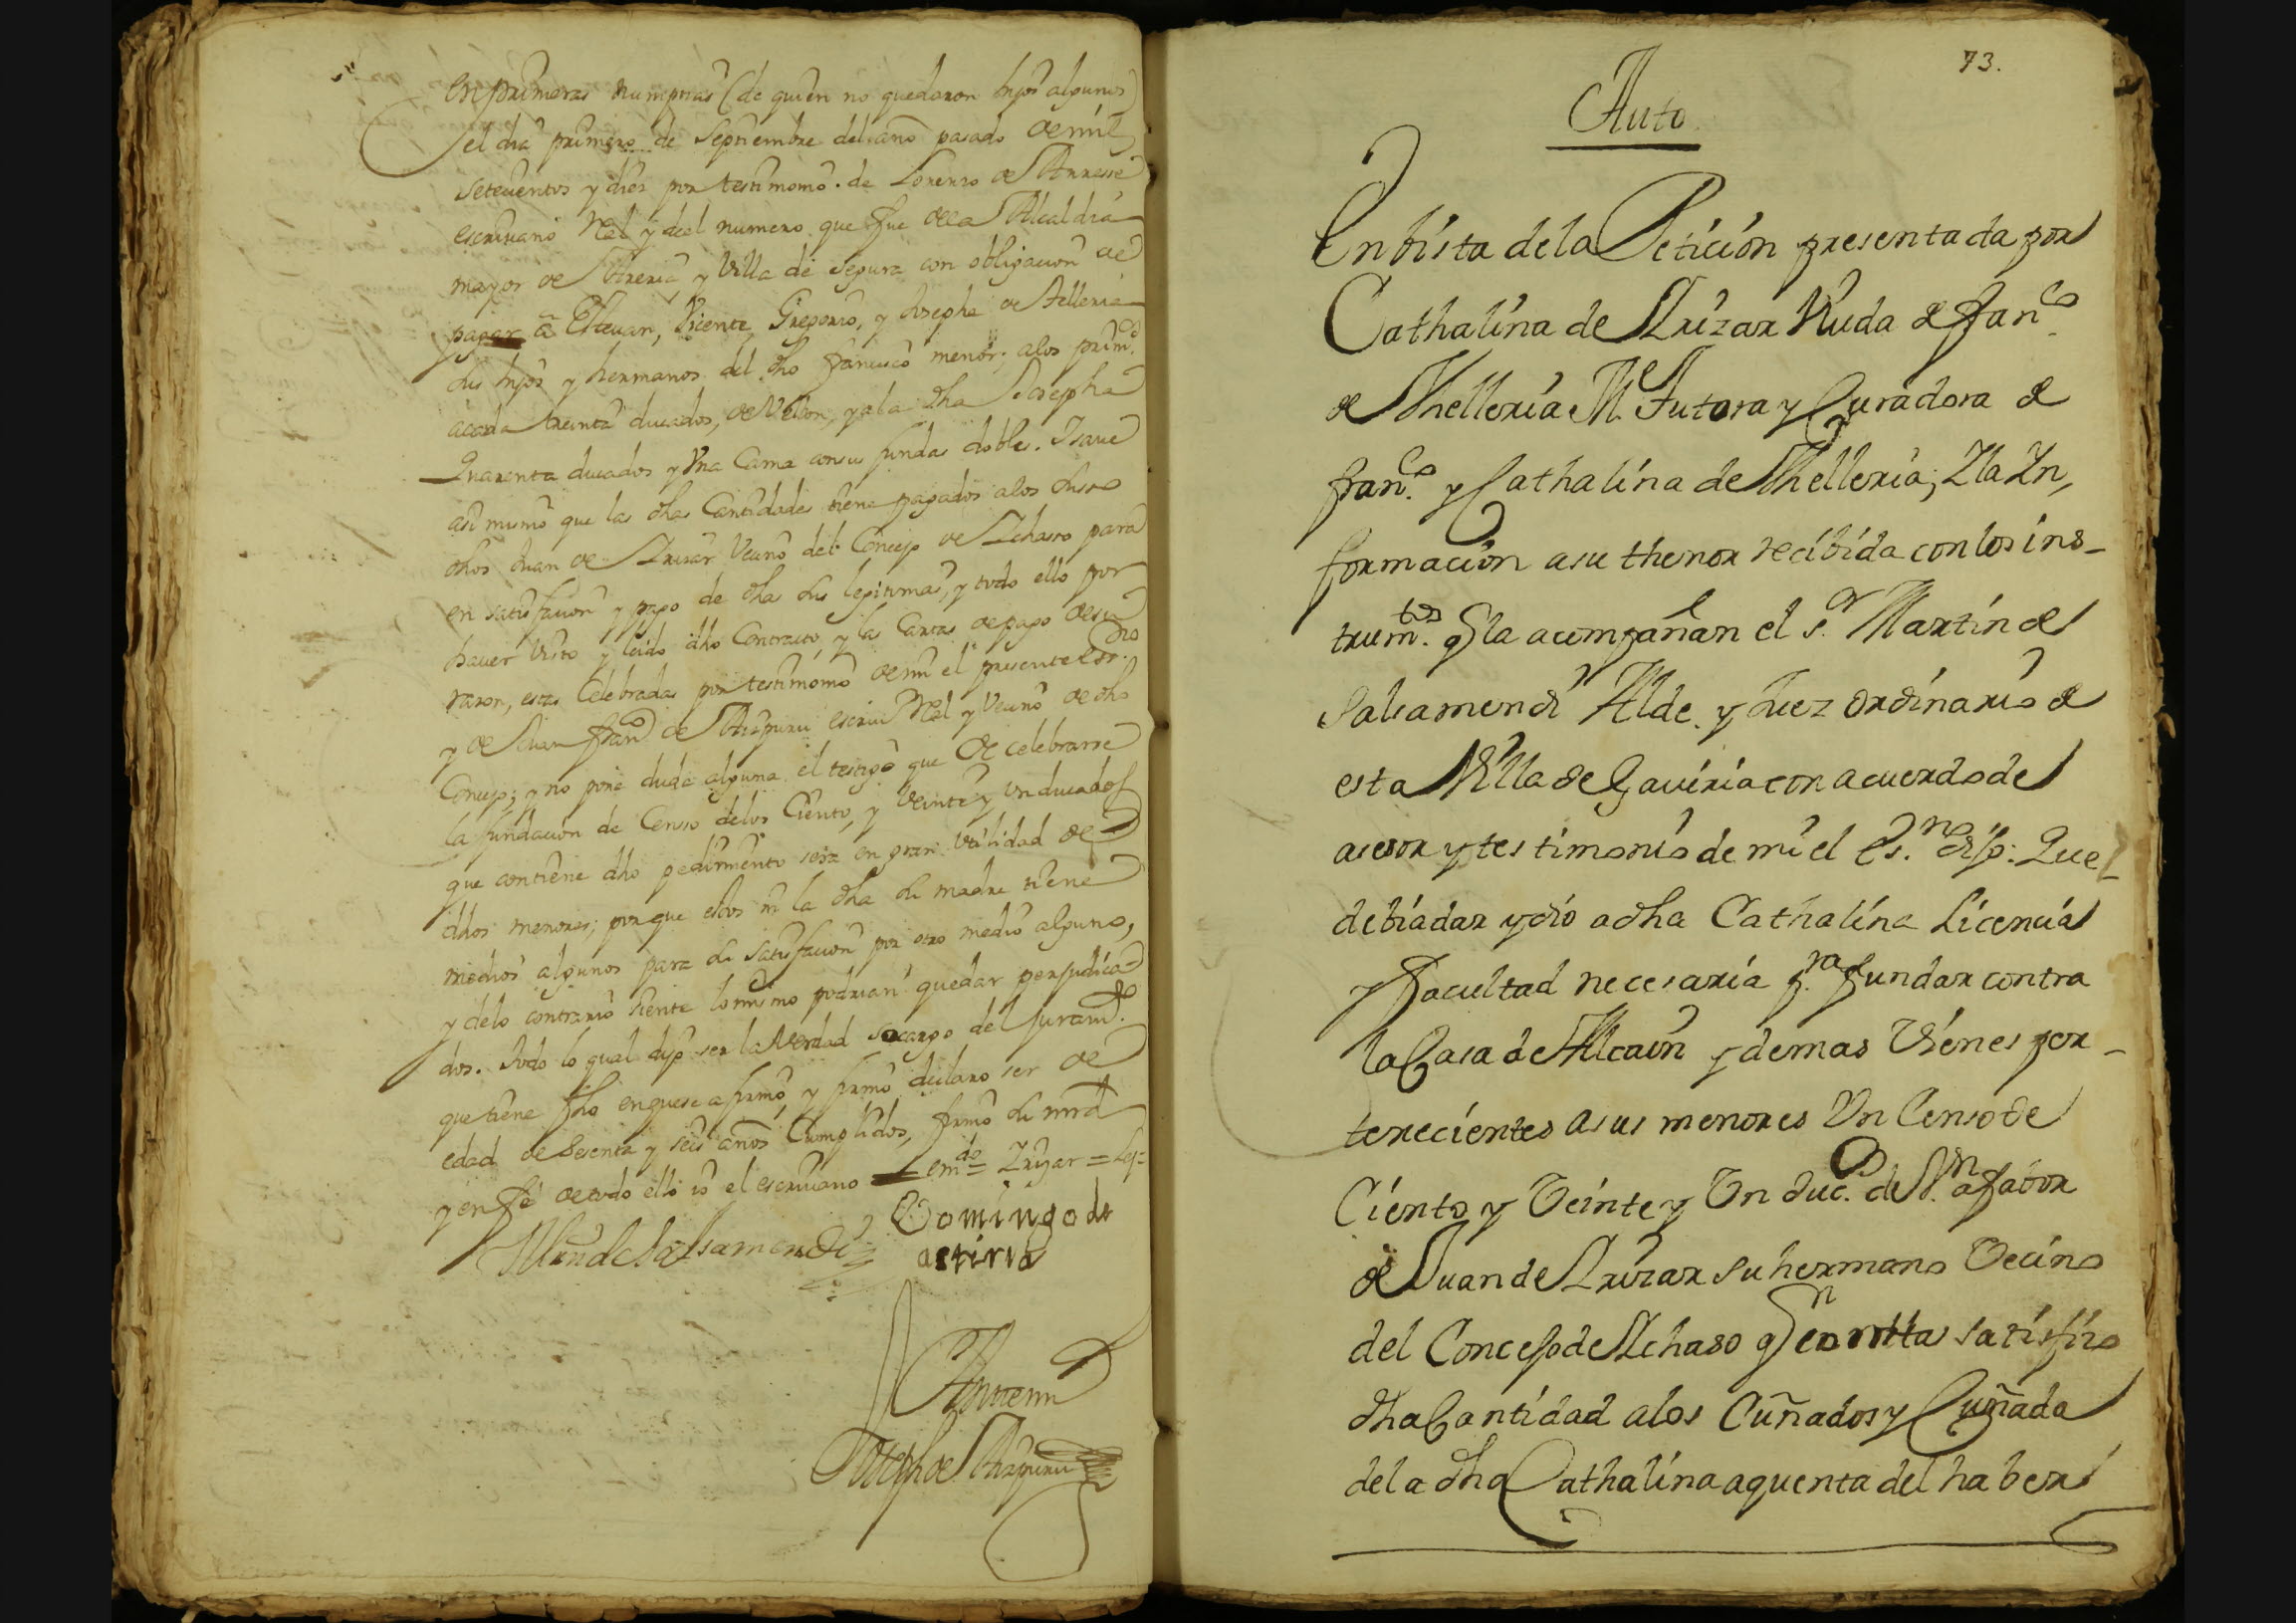 en primeras numpcias (de quien no quedaron hijos algunos)
el dia primero de septiembre del año pasado de mil
setecientos y diez por testimonio de Lorenzo de Arrese
escrivano Real y del numero que fue de la Alcaldia
mayor de Areria, y Villa de segura con obligacion de
pagar a Estevan, Vicente, Gregorio, y Josepha de Telleria
sus hijos y hermanos del dho francisco menor; a los prim.os
a cada treinta ducados, de Vellon, y a la dha Josepha
Quarenta ducados y Vna Cama con sus fundas dobles. I save
asi mismo que las dhas Cantidades tiene pagados a los suso
dhos Juan de Irizar Vecino del Concejo de Ichasso para
en satisfacion y pago de dhas sus legitimas, y todo ello por
haver Visto y leido dho Contracto, y las Cartas de pago de su
razon, estas Celebradas por testimonio de mi el presente Es.no
y de Juan fran.co de Aizpuru escriv.o Real y Vecino de dho
Concejo; y no pone duda alguna el testigo que de celebrarse
la fundacion de Censo de los Ciento, y Veinte y Vn ducados
que contiene dho pedimento sera en gran Vtilidad de
dhos menores; porque ellos ni la dha su madre tiene
medios algunos para su satisfacion por otro medio alguno,
y de lo contrario siente lo mismo podrian quedar perjudica-
dos. Todo lo qual dijo ser la Verdad so cargo del Juram.to
que tiene fho en que se afirmó, y firmó declaro ser de
edad de Sesenta y seis años Cumplidos, firmó su mrd
y en fe de todo ello io el escrivano = em.do = Irizar =
Mrn de Salsamendi
Domingo de
astiria
Ante mi
Joseph de Aizpuru
73.
Auto.
En bista de la Peticion presentada por
Cathalina de Irizar Viuda de fran.co
de Thelleria M.e Tutora y Curadora de
fran.co y Cathalina de Thelleria; I la In,
formacion a su thenor recibida con los ins-
trum.tos q la acompañan el s.or Martin de
Salsamendi Alde. y Juez ordinario de
esta Villa de Gaviria con acuerdo de
asesor y testimonio de mi el es.no dijo: Que
debia dar y dio a dha Cathalina Licencia
y facultad necesaria p.ra fundar contra
la Casa de Alcain y demas Vienes per-
tenecientes a sus menores Vn Censo de
Ciento y Veinte y Vn duc.s de V.n a fabor
de Juan de Irizar su hermano Vecino
del Concejo de Ichaso q en satisfizo
dha Cantidad a los Cuñados y Cuñada
de la dha Cathalina a quenta del haber